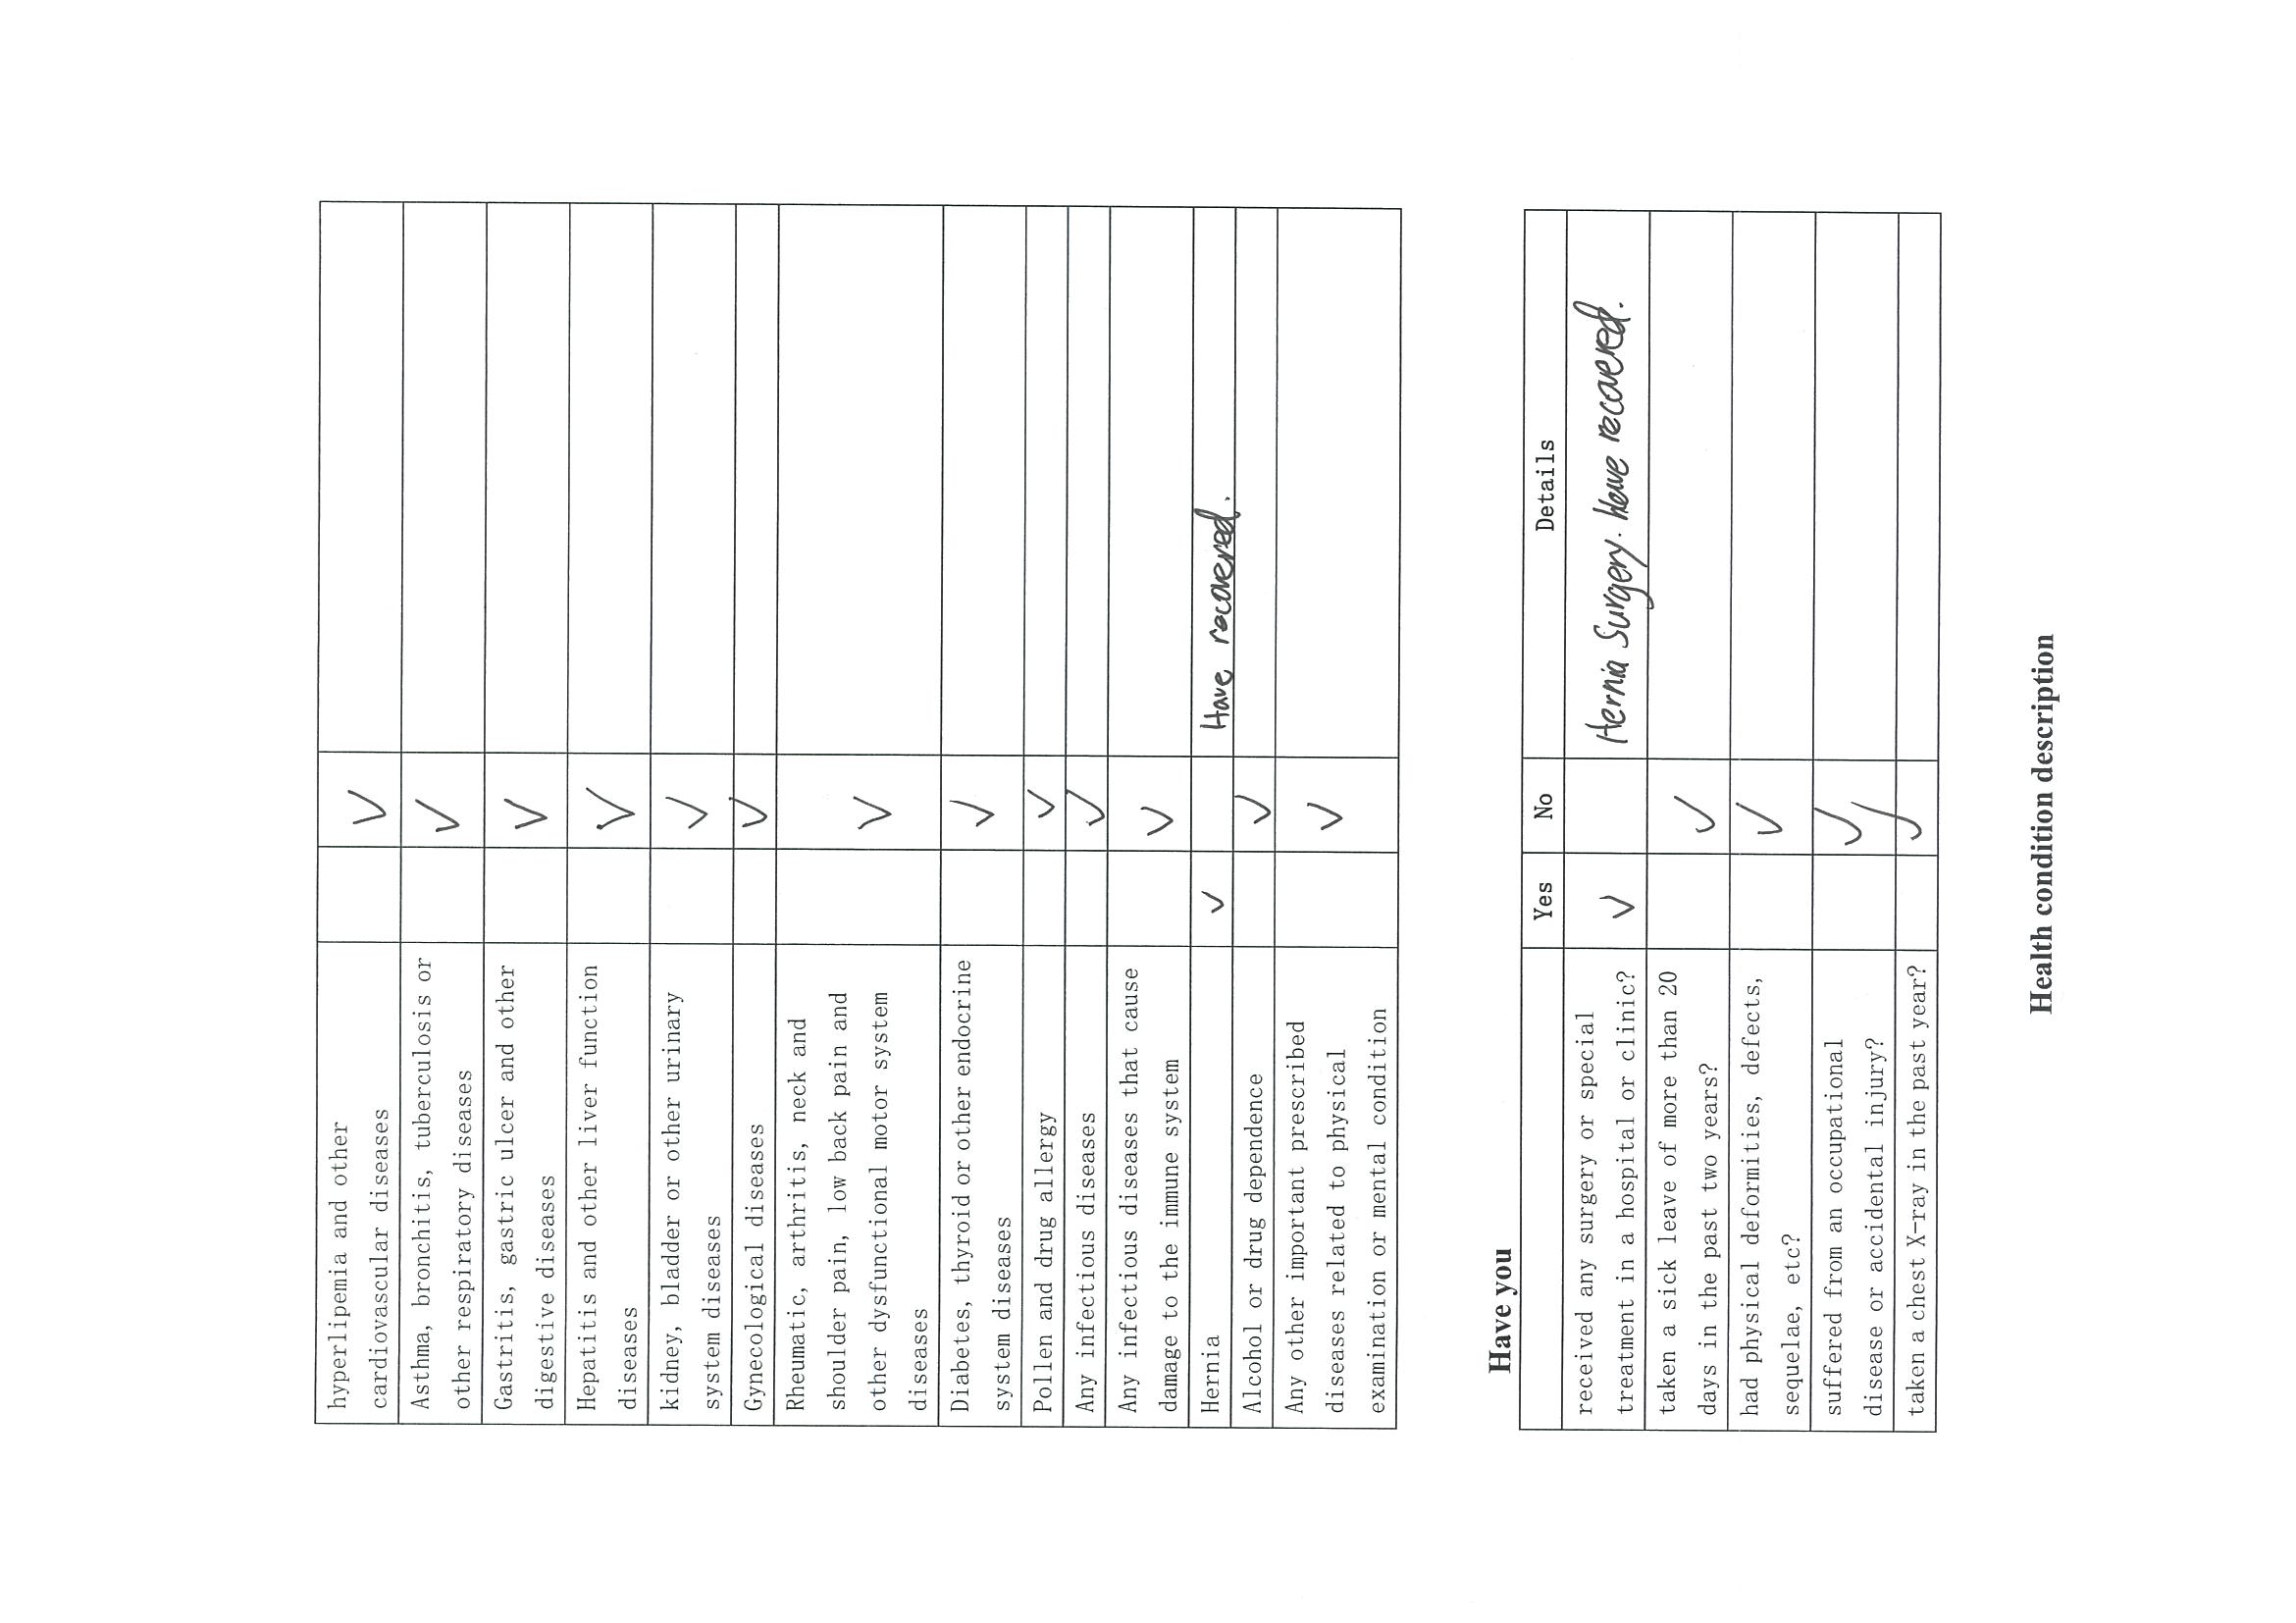 hyperlipemia and other
cardiovascular diseases
√
Asthma, bronchitis, tuberculosis or
other respiratory diseases
√
Gastritis, gastric ulcer and other
digestive diseases
√
Hepatitis and other liver function
diseases
√
kidney, bladder or other urinary
system diseases
√
Gynecological diseases √
Rheumatic, arthritis, neck and
shoulder pain, low back pain and
other dysfunctional motor system
diseases
√
Diabetes, thyroid or other endocrine
system diseases
√
Pollen and drug allergy √
Any infectious diseases √
Any infectious diseases that cause
damage to the immune system
√
Hernia √ Have recovered.
Alcohol or drug dependence √
Any other important prescribed
diseases related to physical
examination or mental condition
√
Have you
Yes No Details
received any surgery or special
treatment in a hospital or clinic?
√ Hernia Surgery. Have recovered.
taken a sick leave of more than 20
days in the past two years?
√
had physical deformities, defects,
sequelae, etc?
√
suffered from an occupational
disease or accidental injury?
√
taken a chest X-ray in the past year? √
Health condition description